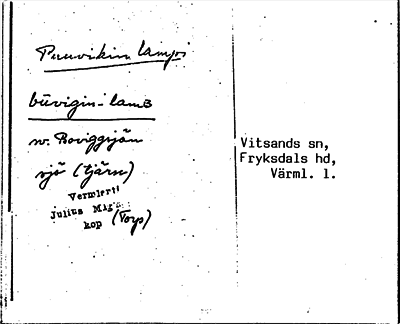 Puuvikin lampi
būvigin-lamb
w. Boviggsjön
sjö (tjärn)
Vermlert!
Julius Mäg
kop (Torp)
Vitsands sn,
Fryksdals hd,
Värml. l.